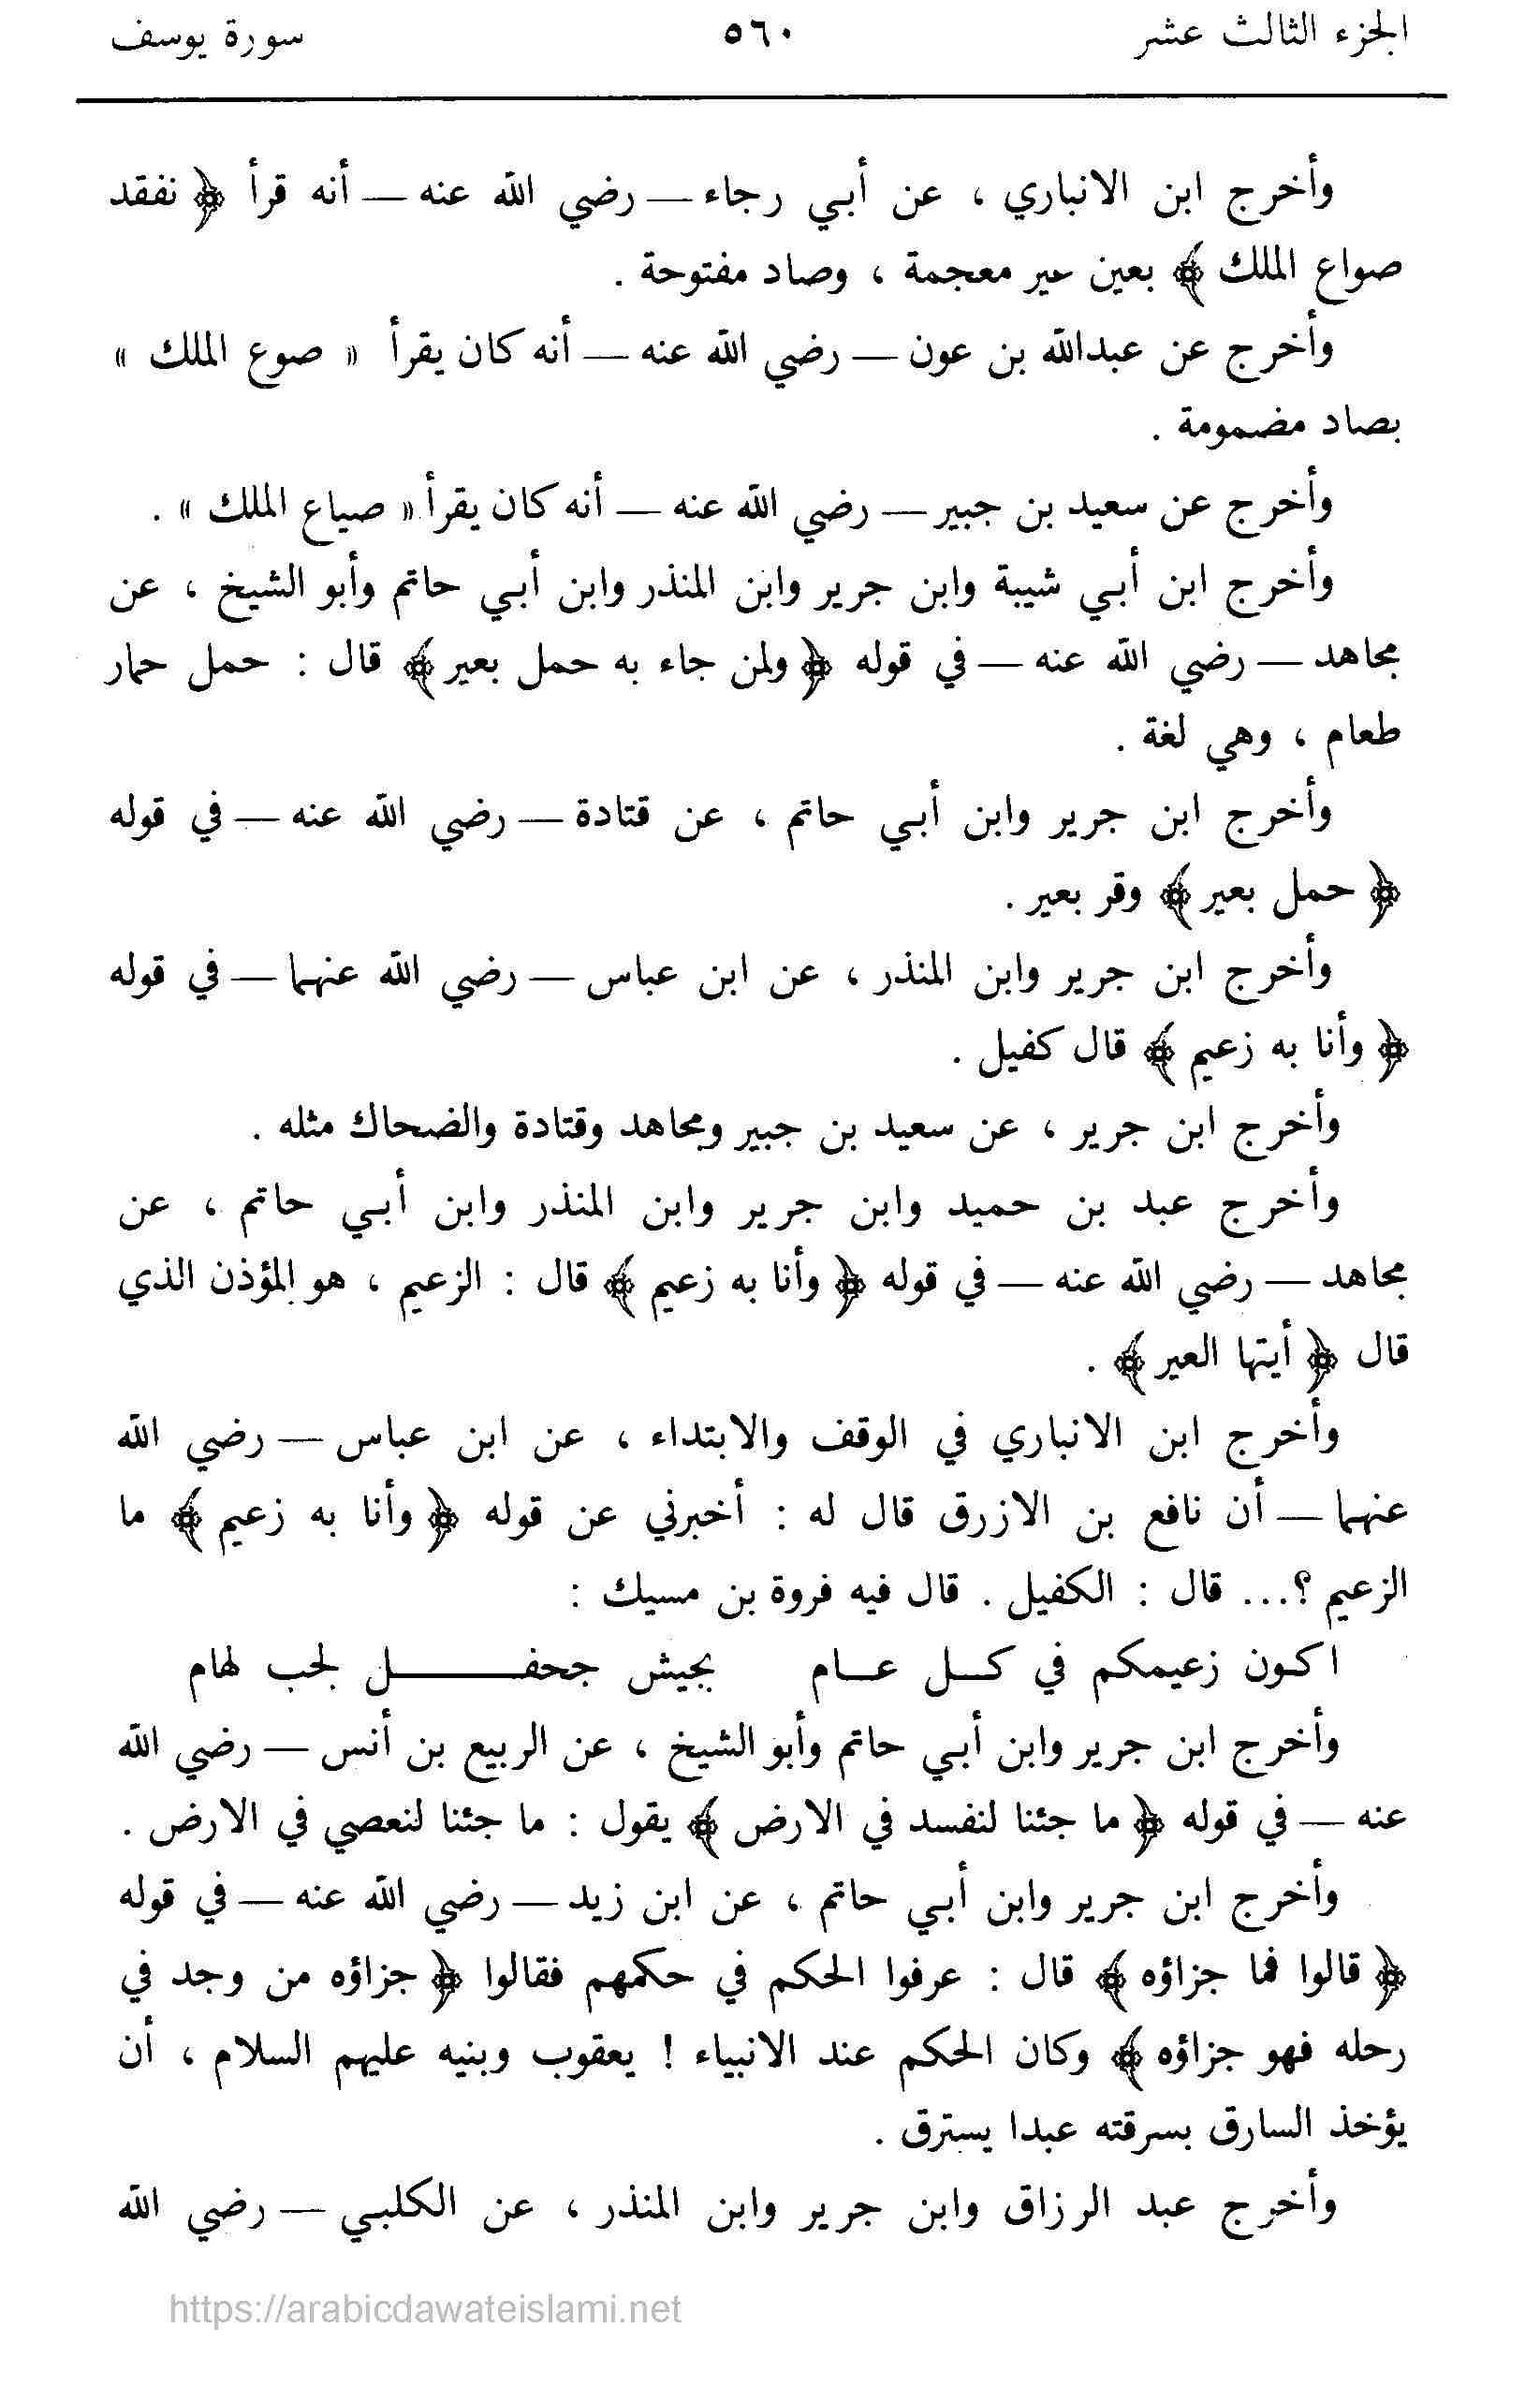 الجزء الثالث عشر ٥٦٠ سورة يوسف
وأخرج ابن الانباري ، عن أبي رجاء — رضي الله عنه — أنه قرأ ﴿ نفقد
صواع الملك ﴾ بعين غير معجمة ، وصاد مفتوحة .
وأخرج عن عبدالله بن عون — رضي الله عنه — أنه كان يقرأ « صوع الملك »
بصاد مضمومة .
وأخرج عن سعيد بن جبير — رضي الله عنه — أنه كان يقرأ « صياع الملك » .
وأخرج ابن أبي شيبة وابن جرير وابن المنذر وابن أبي حاتم وأبو الشيخ ، عن
مجاهد — رضي الله عنه — في قوله ﴿ ولمن جاء به حمل بعير ﴾ قال : حمل حمار
طعام ، وهي لغة .
وأخرج ابن جرير وابن أبي حاتم ، عن قتادة — رضي الله عنه — في قوله
﴿ حمل بعير ﴾ وقر بعير .
وأخرج ابن جرير وابن المنذر ، عن ابن عباس — رضي الله عنهما — في قوله
﴿ وأنا به زعيم ﴾ قال كفيل .
وأخرج ابن جرير ، عن سعيد بن جبير ومجاهد وقتادة والضحاك مثله .
وأخرج عبد بن حميد وابن جرير وابن المنذر وابن أبي حاتم ، عن
مجاهد — رضي الله عنه — في قوله ﴿ وأنا به زعيم ﴾ قال : الزعيم ، هو المؤذن الذي
قال ﴿ أيتها العير ﴾ .
وأخرج ابن الانباري في الوقف والابتداء ، عن ابن عباس — رضي الله
عنهما — أن نافع بن الازرق قال له : أخبرني عن قوله ﴿ وأنا به زعيم ﴾ ما
الزعيم ؟... قال : الكفيل . قال فيه فروة بن مسيك :
اكون زعيمكم في كل عام بجيش جحفل لجب لهام
وأخرج ابن جرير وابن أبي حاتم وأبو الشيخ ، عن الربيع بن أنس — رضي الله
عنه — في قوله ﴿ ما جئنا لنفسد في الارض ﴾ يقول : ما جئنا لنعصي في الارض .
وأخرج ابن جرير وابن أبي حاتم ، عن ابن زيد — رضي الله عنه — في قوله
﴿ قالوا فما جزاؤه ﴾ قال : عرفوا الحكم في حكمهم فقالوا ﴿ جزاؤه من وجد في
رحله فهو جزاؤه ﴾ وكان الحكم عند الانبياء ! يعقوب وبنيه عليهم السلام ، أن
يؤخذ السارق بسرقته عبدا يسترق .
وأخرج عبد الرزاق وابن جرير وابن المنذر ، عن الكلبي — رضي الله
https://arabicdawateislami.net